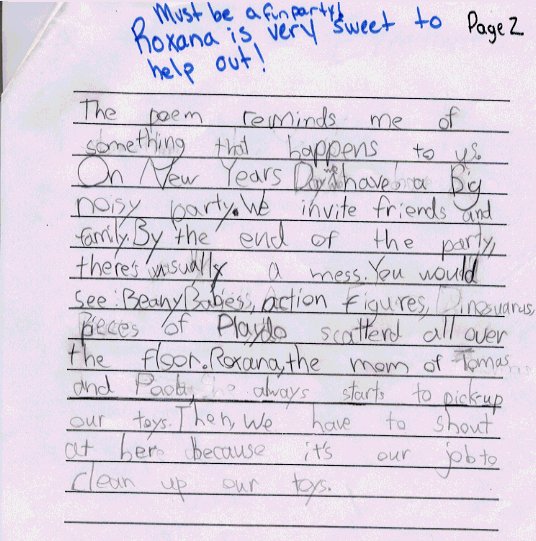 Must be a fun party!
Roxana is very sweet to
help out!
Page 2
The poem reminds me of
something that happens to us.
On New Years Day we have a Big
noisy party. We invite friends and
family. By the end of the party,
there's usually a mess. You would
see: Beany Babies, action figures, Dinosuarus,
Pieces of Playdo scatterd all over
the floor. Roxana, the mom of Tomas
and Paola, always starts to pick-up
our toys. Then, we have to shout
at her because it's our job to
clean up our toys.